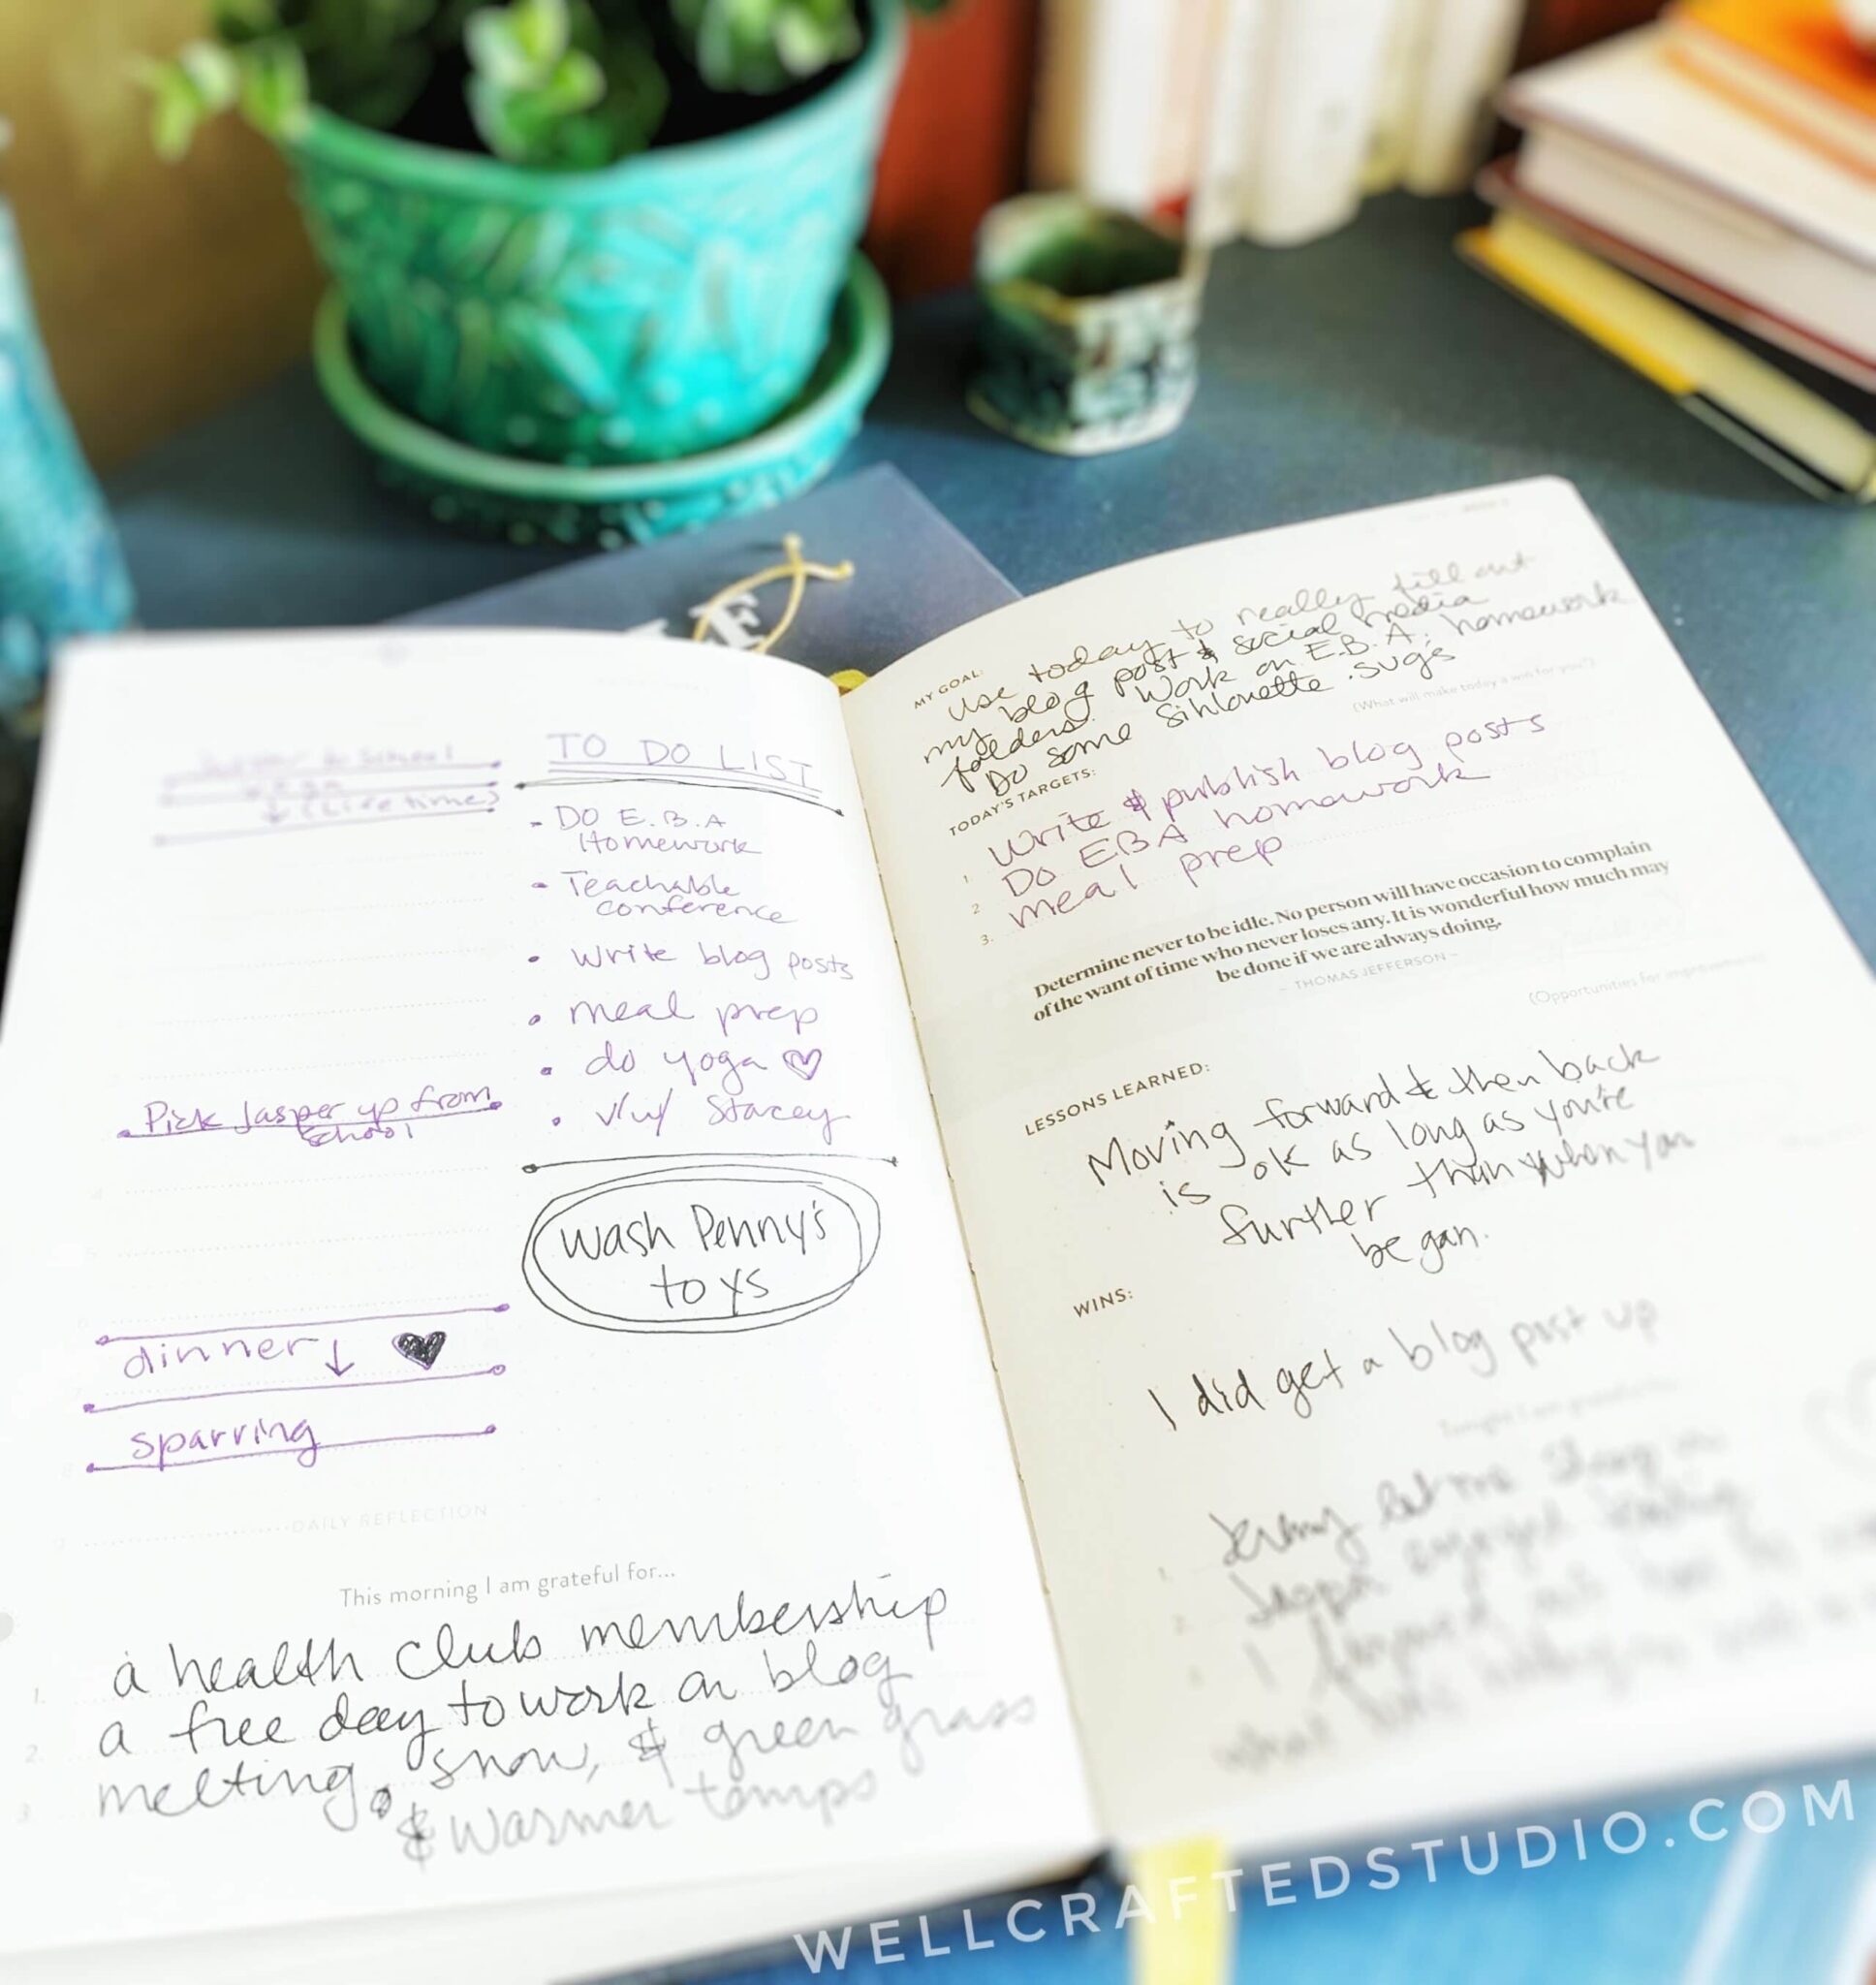 Jasper to School
yoga
↓ (Lifetime)
Pick Jasper up from
School
dinner ↓ ♥
sparring
TO DO LIST
- DO E.B.A
Homework
- Teachable
conference
• Write blog posts
• meal prep
• do yoga ♡
• v/w/ Stacey
Wash Penny's
toys
DAILY REFLECTION
This morning I am grateful for...
1. a health club membership
2. a free day to work on blog
3. melting snow, & green grass
& warmer temps
MY GOAL:
Use today to really fill out
my blog post & social media
folders. Work on E.B.A. homework
Do some Sihlouette .svg's
(What will make today a win for you?)
TODAY'S TARGETS:
1 Write & publish blog posts
2 Do EBA homework
3. meal prep
Determine never to be idle. No person will have occasion to complain
of the want of time who never loses any. It is wonderful how much may
be done if we are always doing.
– THOMAS JEFFERSON –
(Opportunities for improvement)
LESSONS LEARNED:
Moving forward & then back
is ok as long as you're
further than when you
began.
WINS:
I did get a blog post up
Tonight I am grateful for...
1. Jeremy let me sleep in
2. Jasper enjoyed
I figured out how to
what
WELLCRAFTEDSTUDIO.COM